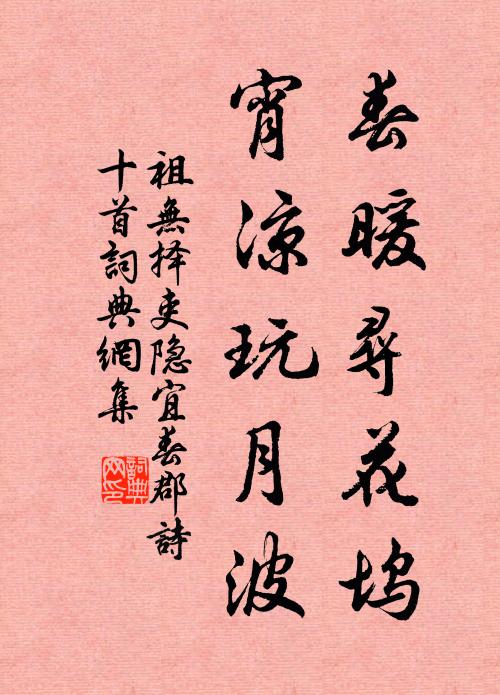 春暖尋花坞
宵凉玩月波
祖無择吏隐宜春郡詩
十首詞典網集
詞典
网印